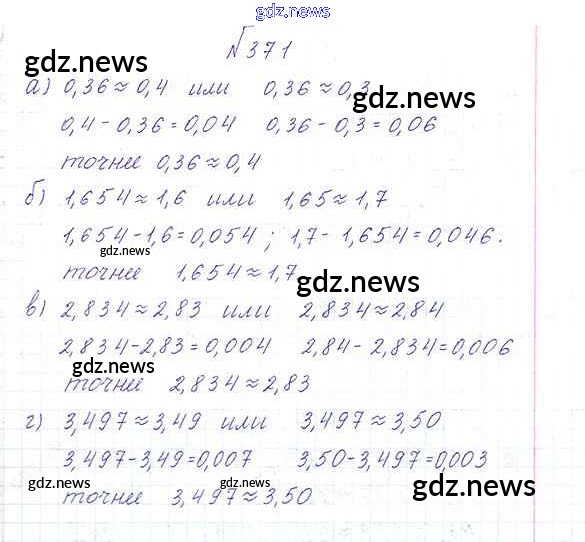 gdz.news
№371
gdz.news
а) 0,36≈0,4 или 0,36≈0,3
gdz.news
0,4-0,36=0,04 0,36-0,3=0,06
точнее 0,36≈0,4
б) 1,654≈1,6 или 1,65≈1,7
1,654-1,6=0,054; 1,7-1,654=0,046.
gdz.news
точнее 1,654≈1,7
gdz.news
в) 2,834≈2,83 или 2,834≈2,84
2,834-2,83=0,004 2,84-2,834=0,006
gdz.news
точнее 2,834≈2,83
г) 3,497≈3,49 или 3,497≈3,50
3,497-3,49=0,007 3,50-3,497=0,003
gdz.news gdz.news gdz.news
точнее 3,497≈3,50